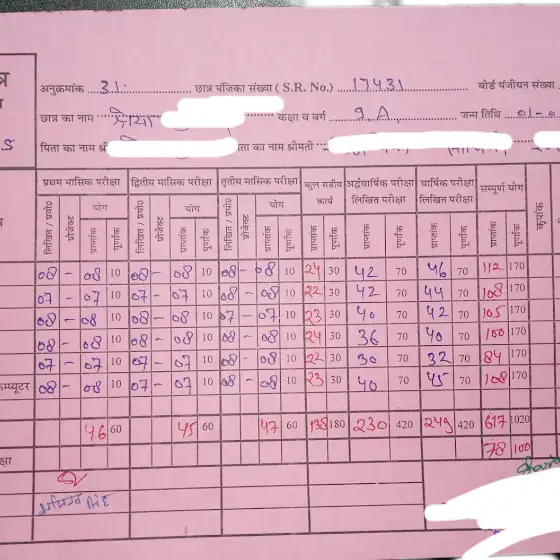 त्र
अनुक्रमांक 31 छात्र पंजिका संख्या ( S.R. No.) 17431 बोर्ड पंजीयन संख्या
छात्र का नाम कक्षा व वर्ग 9 A जन्म तिथि 01-0
पिता का नाम श्री ता का नाम श्रीमती
प्रथम मासिक परीक्षा द्वितीय मासिक परीक्षा तृतीय मासिक परीक्षा कुल सत्रीय कार्य अर्द्धवार्षिक परीक्षा लिखित परीक्षा वार्षिक परीक्षा लिखित परीक्षा सम्पूर्ण योग
लिखित / प्रयो० प्रोजेक्ट योग लिखित / प्रयो० प्रोजेक्ट योग लिखित / प्रयो० प्रोजेक्ट योग
प्राप्तांक पूर्णांक प्राप्तांक पूर्णांक प्राप्तांक पूर्णांक प्राप्तांक पूर्णांक प्राप्तांक पूर्णांक प्राप्तांक पूर्णांक प्राप्तांक पूर्णांक
08 - 08 10 08 - 08 10 08 - 08 10 24 30 42 70 46 70 112 170
07 - 07 10 07 - 07 10 08 - 08 10 22 30 42 70 44 70 108 170
08 - 08 10 08 - 08 10 07 - 07 10 23 30 40 70 42 70 105 170
08 - 08 10 08 - 08 10 08 - 08 10 24 30 36 70 40 70 100 170
07 - 07 10 07 - 07 10 08 - 08 10 22 30 30 70 32 70 84 170
म्प्यूटर 08 - 08 10 07 - 07 10 08 - 08 10 23 30 40 70 45 70 108 170
46 60 45 60 47 60 138 180 230 420 249 420 617 1020
78 100
क्षा